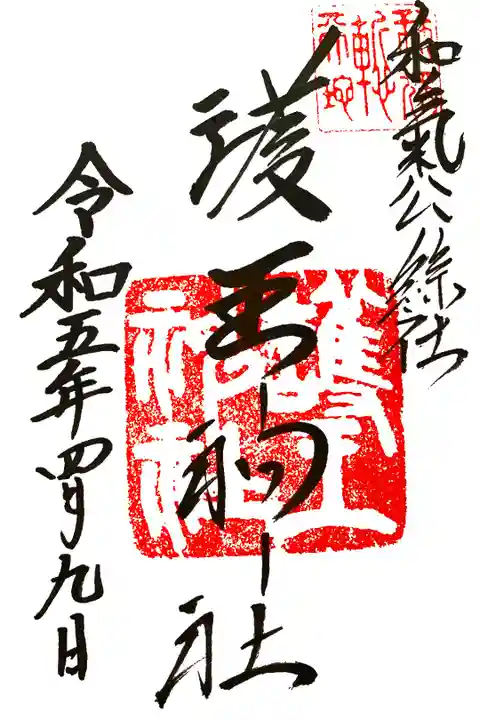 和氣公綜社
護王神社
護王神社
令和五年四月九日